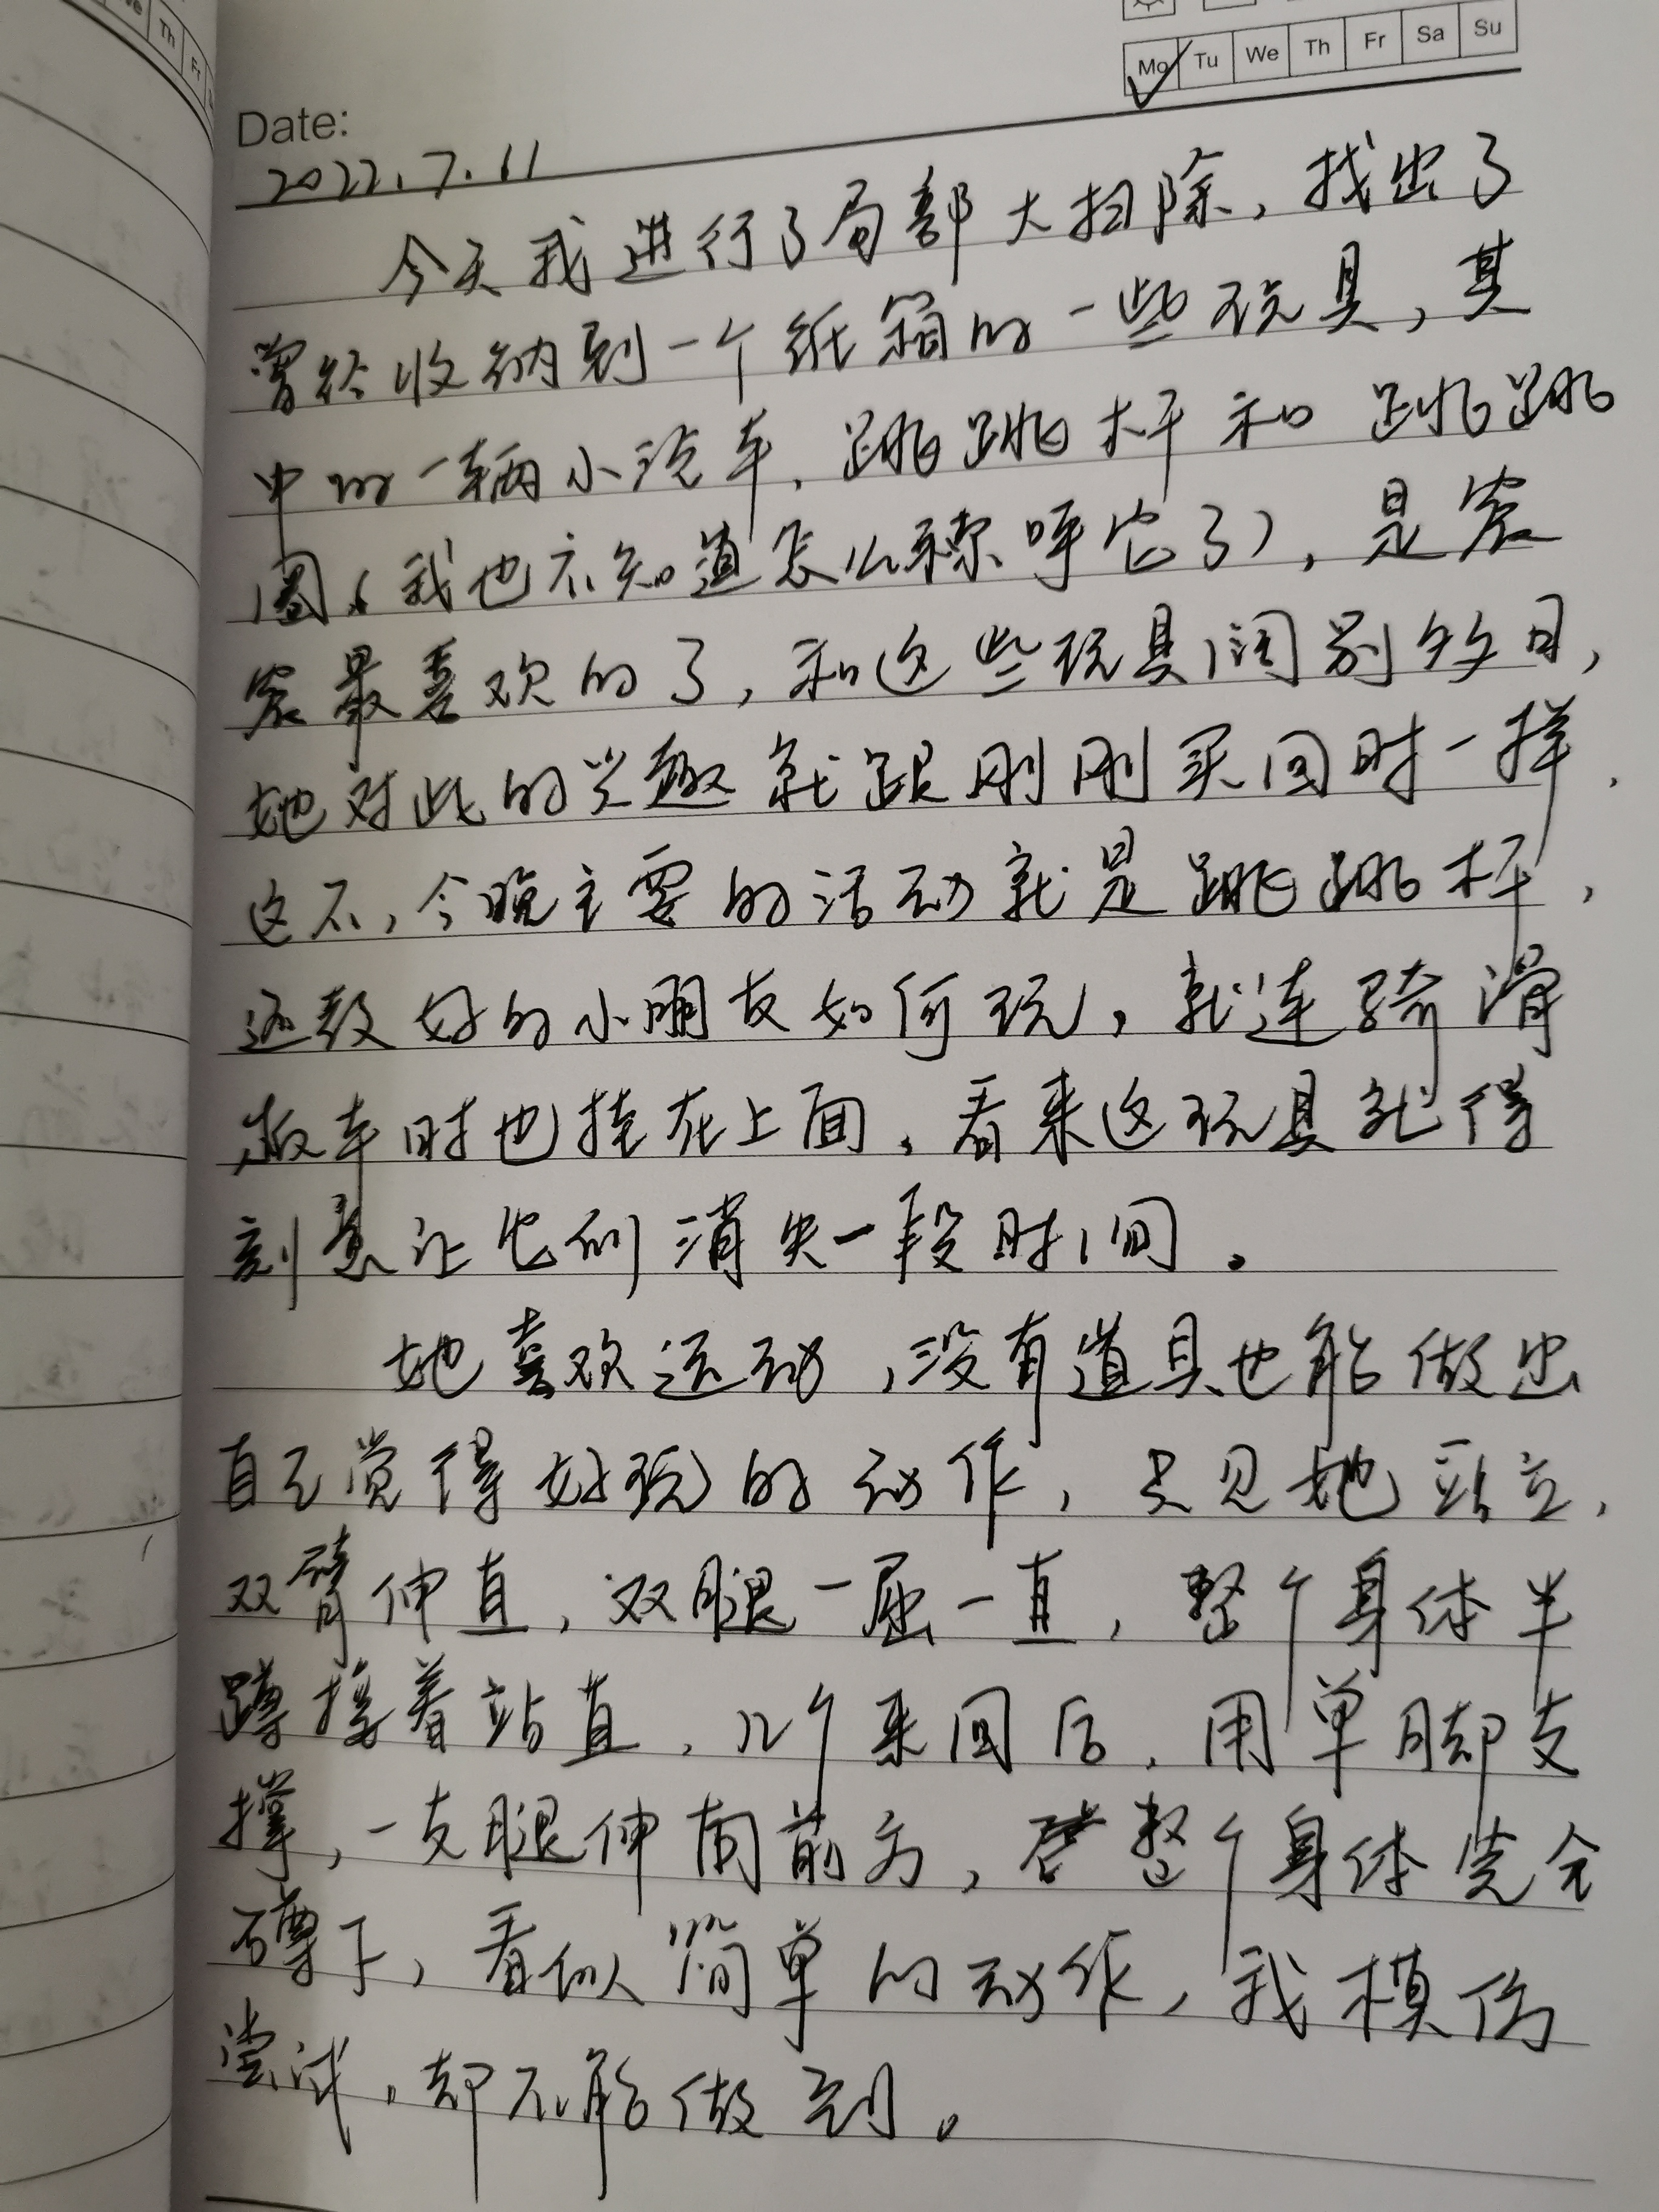 Mo Tu We Th Fr Sa Su
Date:
2022.7.11
今天我进行了局部大扫除，找出了
曾经收纳到一个纸箱的一些玩具，其
中的一辆小汽车，跳跳杆和跳跳
圈（我也不知道怎么称呼它了），是宸
宸最喜欢的了，和这些玩具阔别多日，
她对此的兴趣就跟刚刚买回时一样，
这不，今晚主要的活动就是跳跳杆，
还教好的小朋友如何玩，就连骑滑
板车时也挂在上面，看来这玩具就得
刻意让它们消失一段时间。
她喜欢运动，没有道具也能做出
自己觉得好玩的动作，只见她站立，
双臂伸直，双腿一屈一直，整个身体半
蹲接着站直，几个来回后，用单脚支
撑，一支腿伸向前方，整个身体完全
蹲下，看似简单的动作，我模仿
尝试，却不能做到。